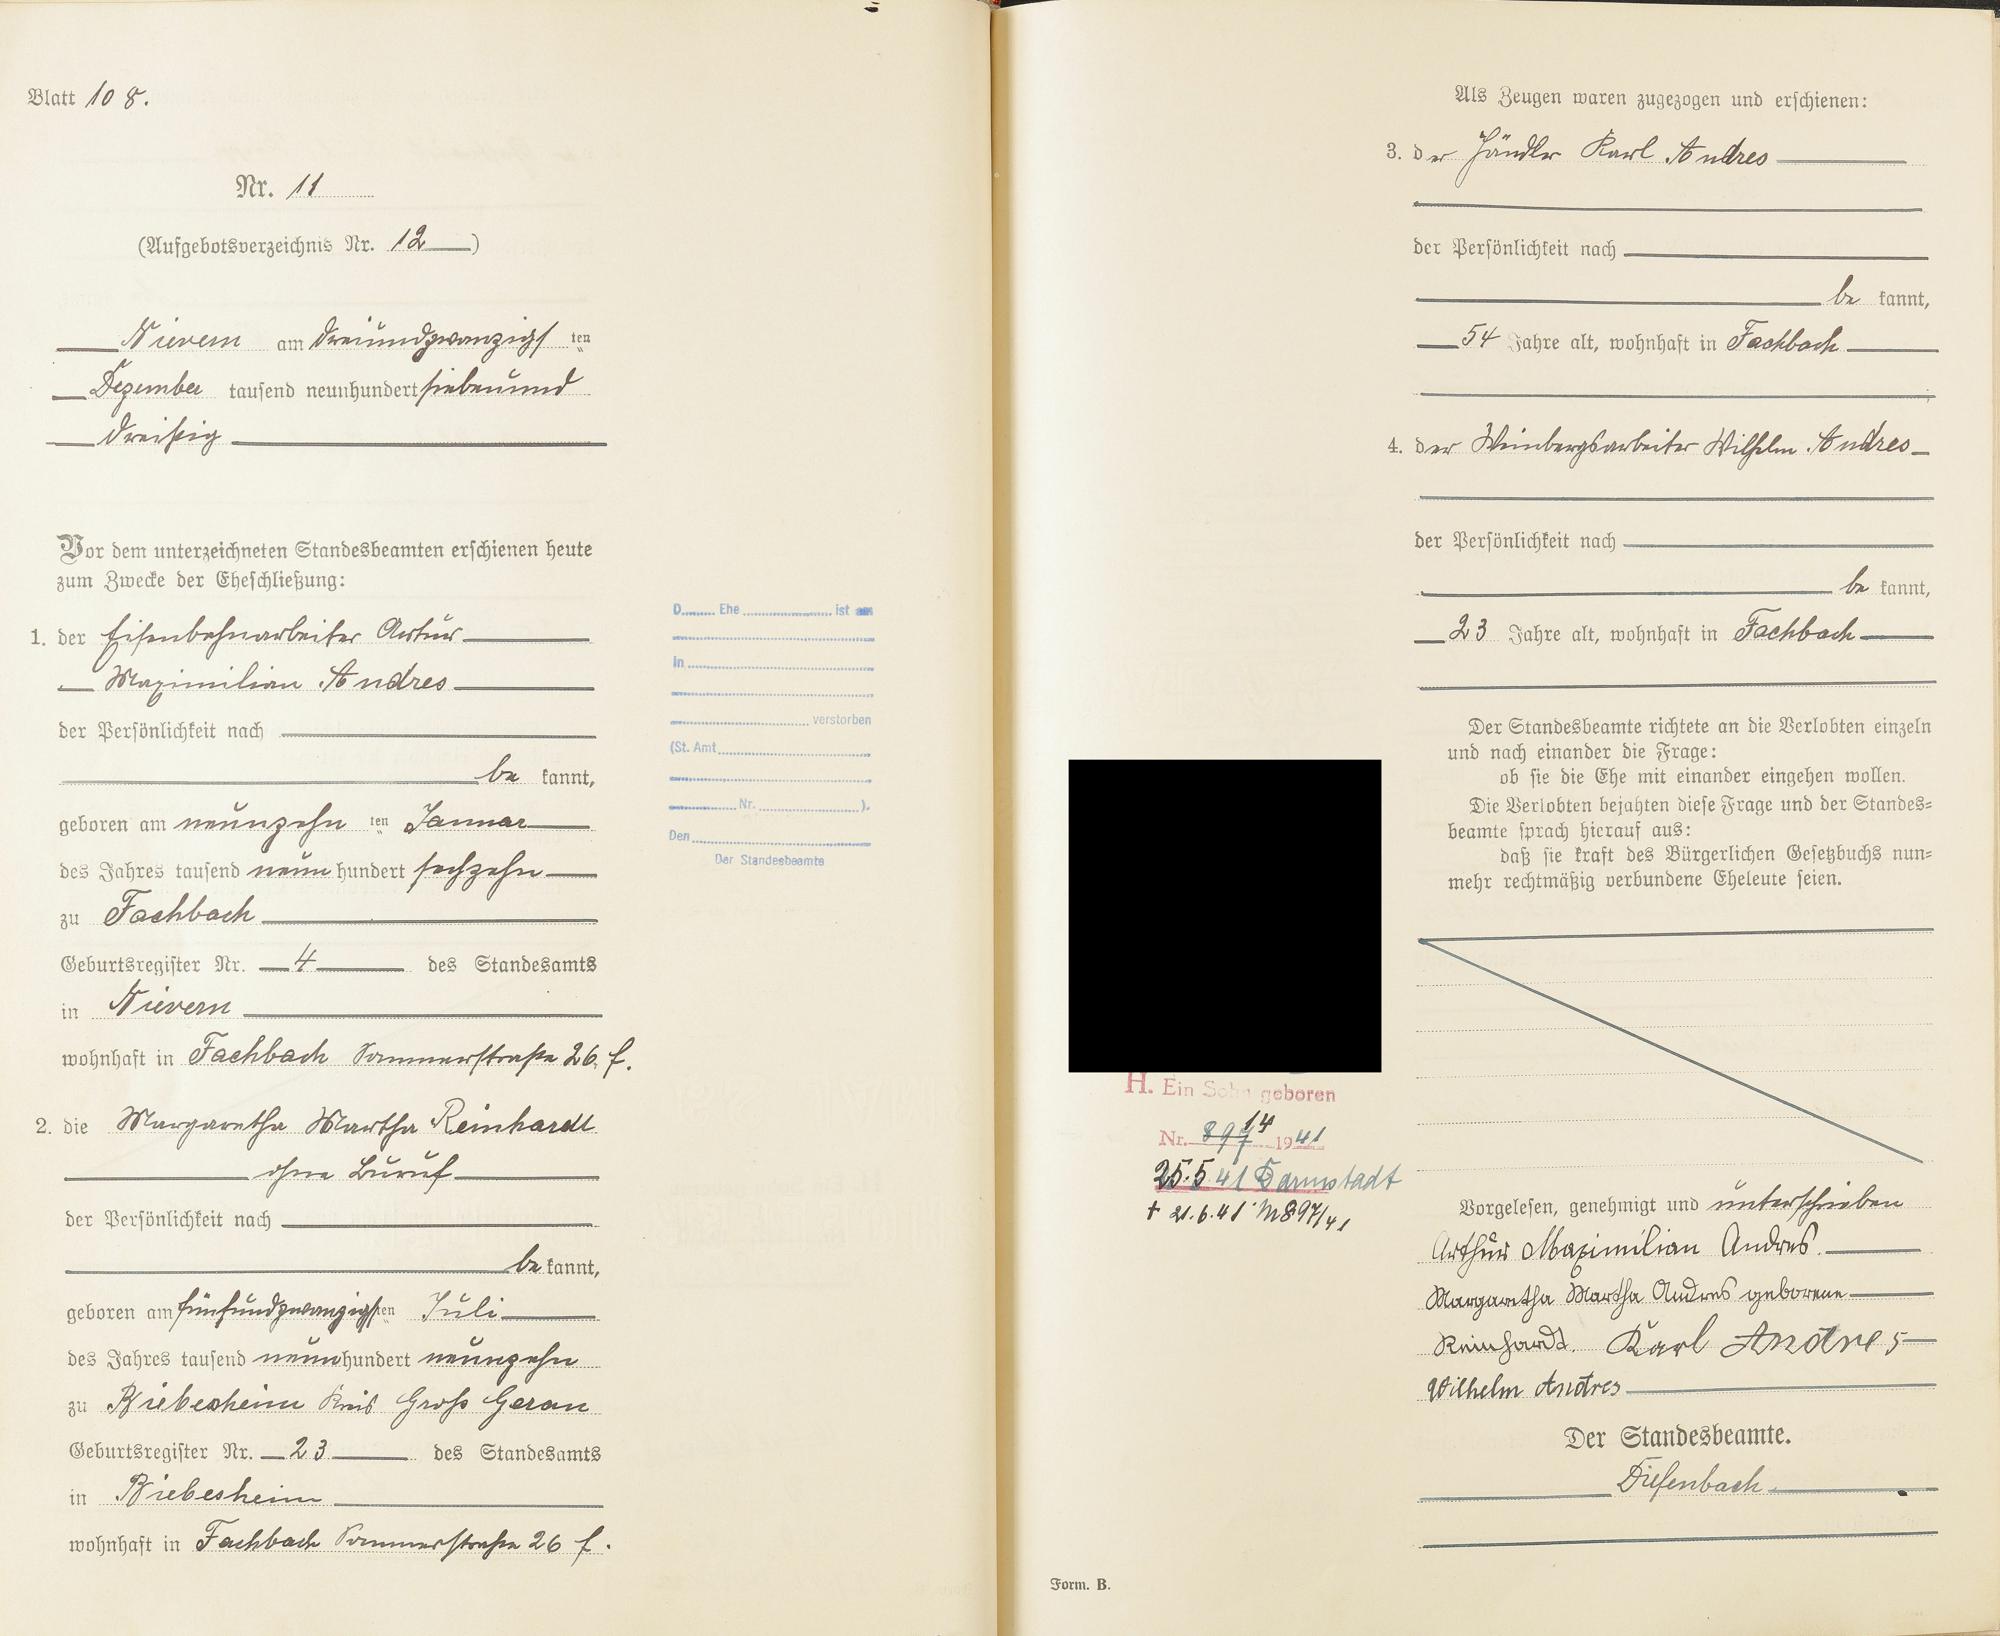 Blatt 108.
Nr. 11
(Aufgebotsverzeichnis Nr. 12)
Nievern am dreiundzwanzigsten
Dezember tausend neunhundert siebenund
dreißig
Vor dem unterzeichneten Standesbeamten erschienen heute
zum Zwecke der Eheschließung:
1. der Eisenbahnarbeiter Artur
Maximilian Andres
der Persönlichkeit nach
be kannt,
geboren am neunzehn ten Januar
des Jahres tausend neun hundert sechzehn
zu Fachbach
Geburtsregister Nr. 4 des Standesamts
in Nievern
wohnhaft in Fachbach Sommerstraße 26 f.
2. die Margaretha Martha Reinhardt
ohne Beruf
der Persönlichkeit nach
be kannt,
geboren am fünfundzwanzigsten Juli
des Jahres tausend neunhundert neunzehn
zu Biebesheim Kreis Groß Gerau
Geburtsregister Nr. 23 des Standesamts
in Biebesheim
wohnhaft in Fachbach Sommerstraße 26 f.
D....... Ehe .................. ist am
in
verstorben
(St. Amt
Nr. ).
Den
Der Standesbeamte
H. Ein Sohn geboren
Nr. 897 14 1941
25.5.41 Darmstadt
† 21.6.41 M897/41
Form. B.
Als Zeugen waren zugezogen und erschienen:
3. der Händler Karl Andres
der Persönlichkeit nach
be kannt,
54 Jahre alt, wohnhaft in Fachbach
4. der Weinbergsarbeiter Wilhelm Andres
der Persönlichkeit nach
be kannt,
23 Jahre alt, wohnhaft in Fachbach
Der Standesbeamte richtete an die Verlobten einzeln
und nach einander die Frage:
ob sie die Ehe mit einander eingehen wollen.
Die Verlobten bejahten diese Frage und der Standes-
beamte sprach hierauf aus:
daß sie kraft des Bürgerlichen Gesetzbuchs nun-
mehr rechtmäßig verbundene Eheleute seien.
Vorgelesen, genehmigt und unterschrieben
Arthur Maximilian Andres.
Margaretha Martha Andres geborene
Reinhardt. Karl Andres
Wilhelm Andres
Der Standesbeamte.
Diefenbach